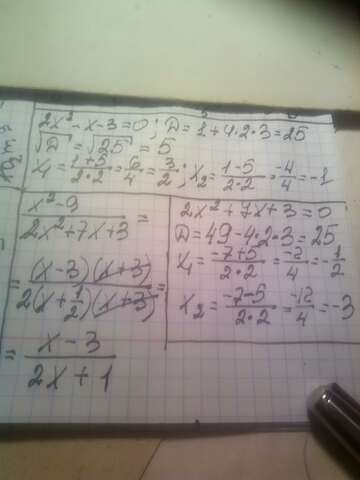 2x² - x - 3 = 0; D = 1 + 4·2·3 = 25
√D = √25 = 5
x₁ = (1+5)/(2·2) = 6/4 = 3/2; x₂ = (1-5)/(2·2) = -4/4 = -1
(x² - 9)/(2x² + 7x + 3) =
= ((x-3)(x+3))/(2(x + 1/2)(x+3)) =
= (x-3)/(2x+1)
2x² + 7x + 3 = 0
D = 49 - 4·2·3 = 25
x₁ = (-7+5)/(2·2) = -2/4 = -1/2
x₂ = (-7-5)/(2·2) = -12/4 = -3